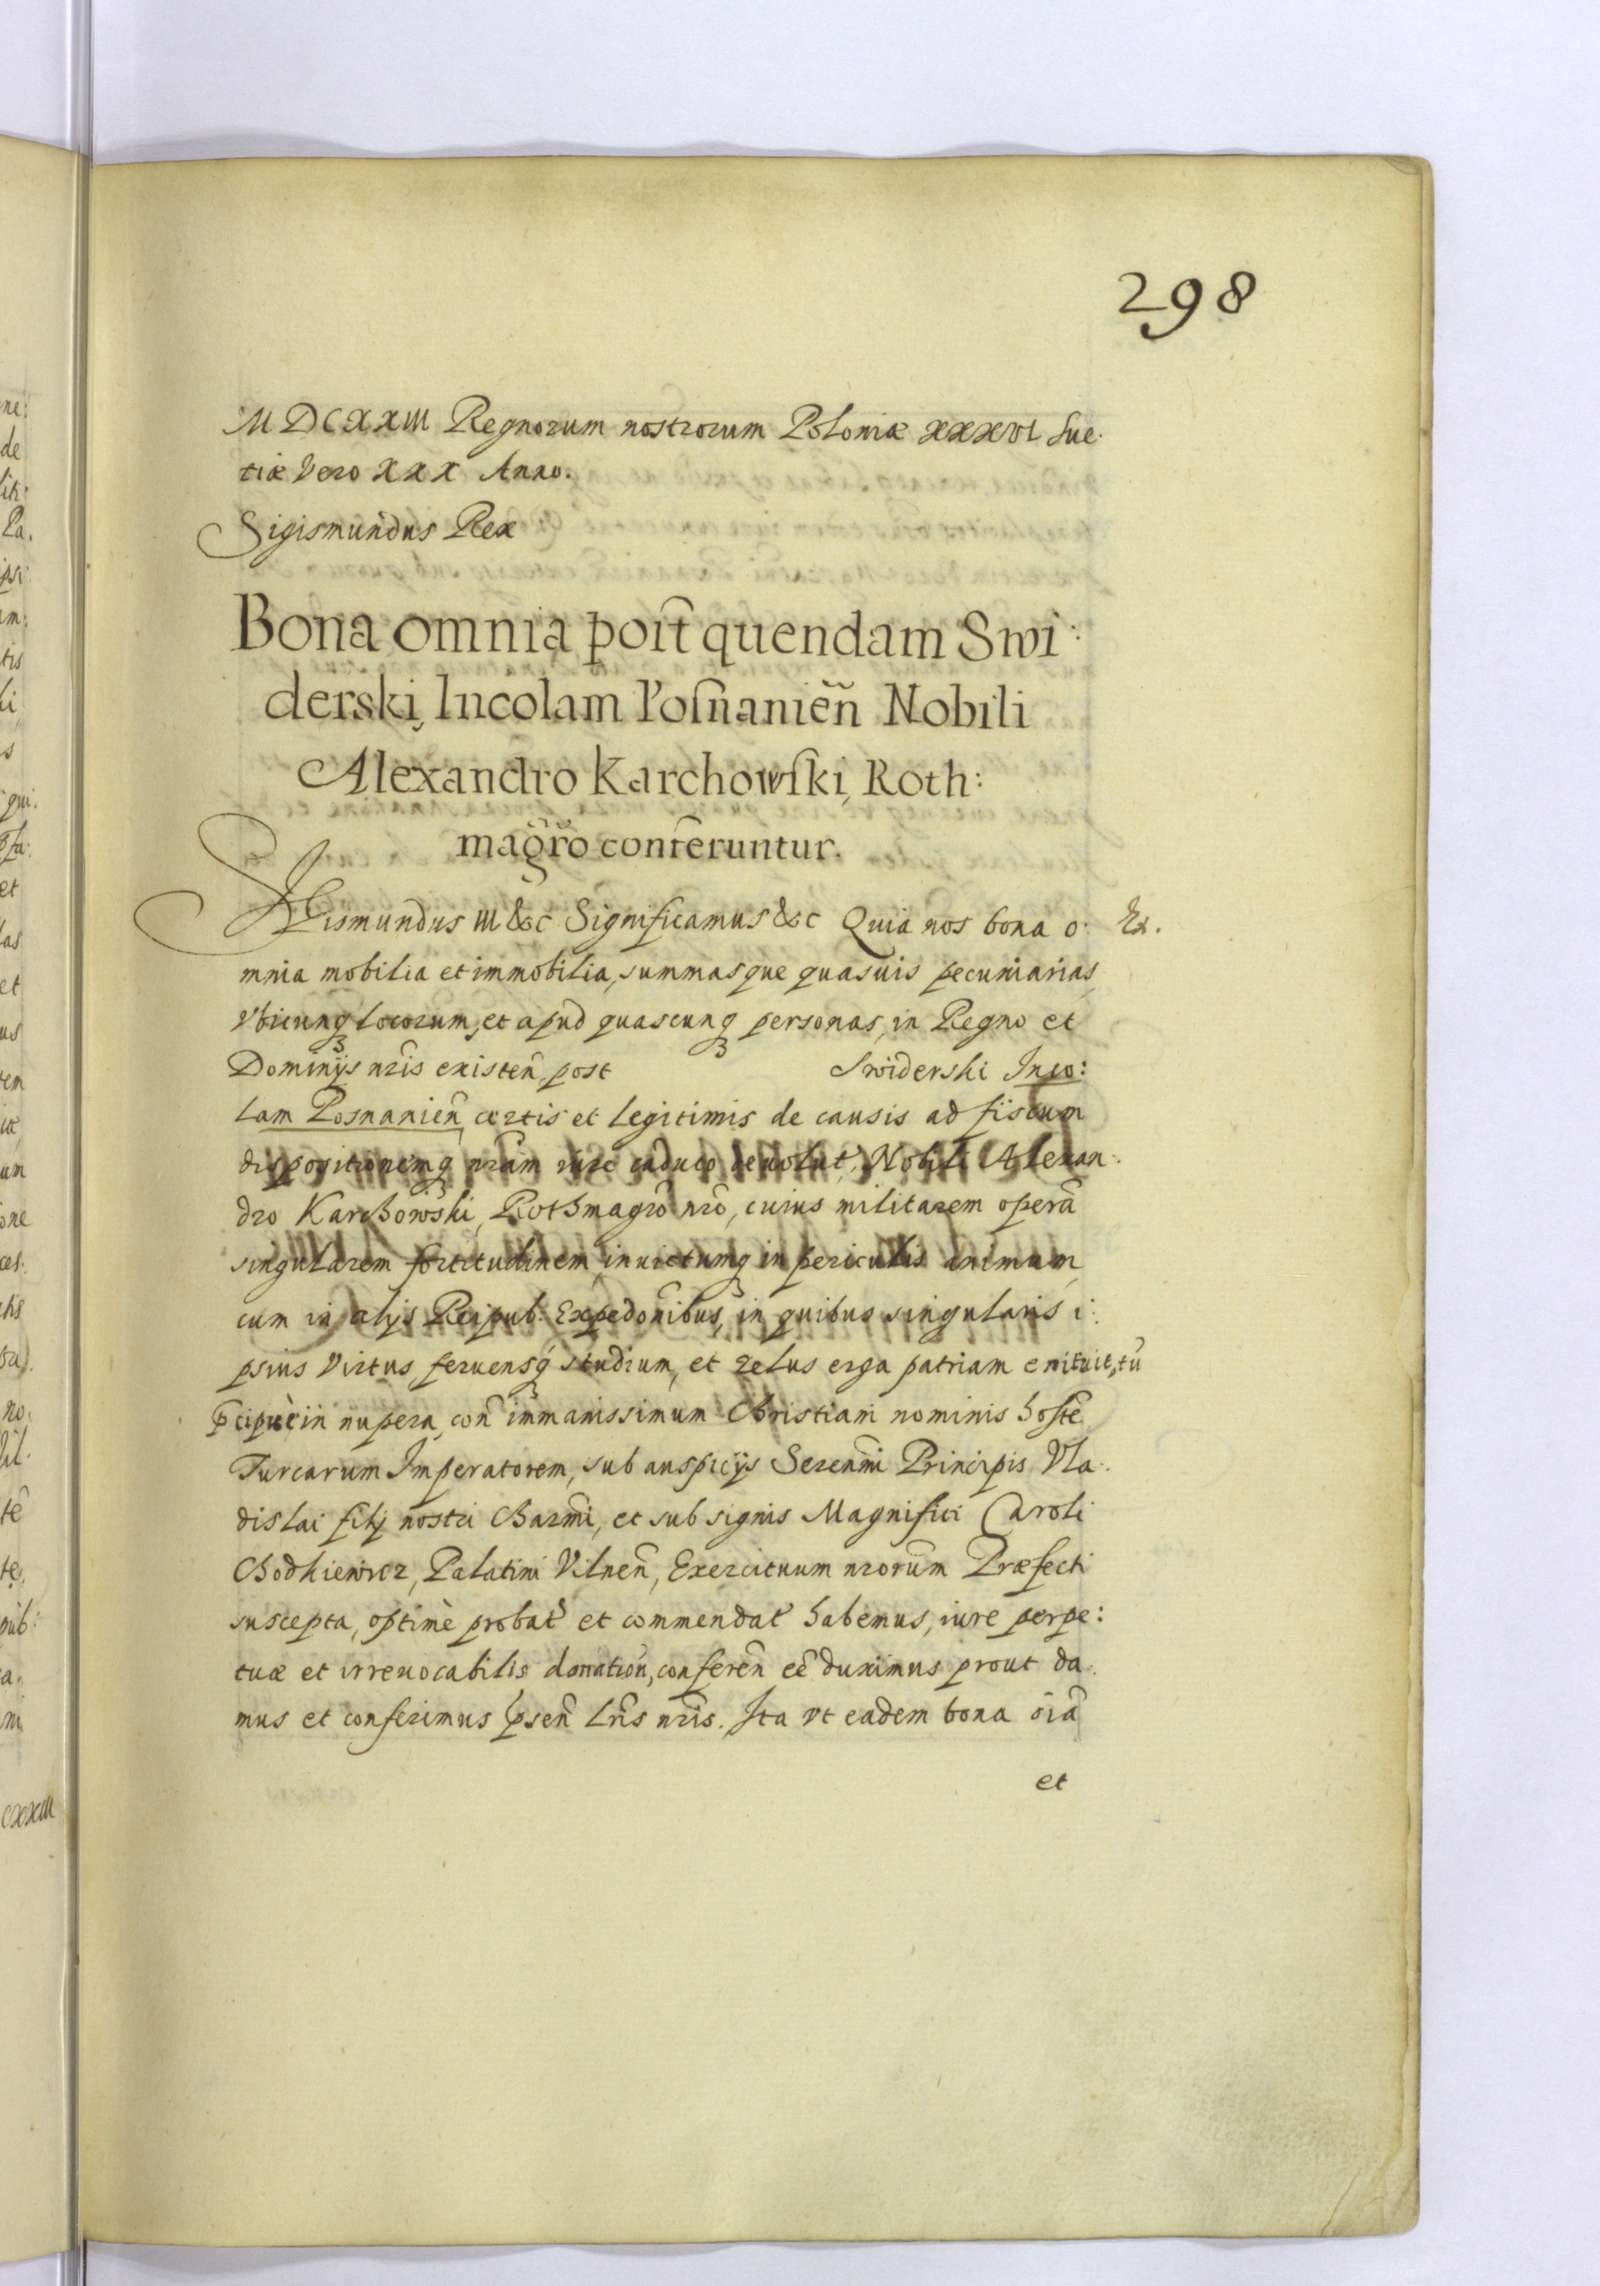 298
MDCXXIII Regnorum nostrorum Poloniæ XXXVI Sue.
tiæ Vero XXX Anno.
Sigismundus Rex
Bona omnia poſt quendam Swi:
derski, Incolam Poſnanien̄ Nobili
Alexandro Karchowſki, Roth:
magr̃o conferuntur.
Sigismundus III &c Significamus &c Quia nos bona o: Ex.
mnia mobilia et immobilia, summasque quasuis pecuniarias,
vbicunq locorum, et apud quascunq personas, in Regno et
Dominijs nr̃is existen̄, post Swiderski Inco:
lam Posnanien̄ certis et legitimis de causis ad fiscum
dispositionemq nr̃am iure caduco deuolut, Nobili Alexan:
dro Karchowski, Rothmagr̃o nr̃o, cuius militarem operā
singularem fortitudinem, inuictumq in periculis animum,
cum in alijs Reipub: Expedo̅nibus, in quibus singularis i:
psius Virtus, feruensq́ studium, et zelus erga patriam enituit, tū
p̄cipuè in nupera, con̄ immanissimum Christiani nominis hostē
Turcarum Imperatorem, sub auspicijs Seren̄mi Principis Vla.
dislai filij nostri Char̄mi, et sub signis Magnifici Caroli
Chodkiewicz, Palatini Vilnen̄, Exercituum nr̃orum Præfecti
suscepta, optimè probat̃ et commendat̃ habemus, iure perpe:
tuæ et irreuocabilis donation̄, conferen̄ eē duximus prout da.
mus et conferimus p̄sen̄ Lr̃is nr̃is. Ita vt eadem bona oīa
et